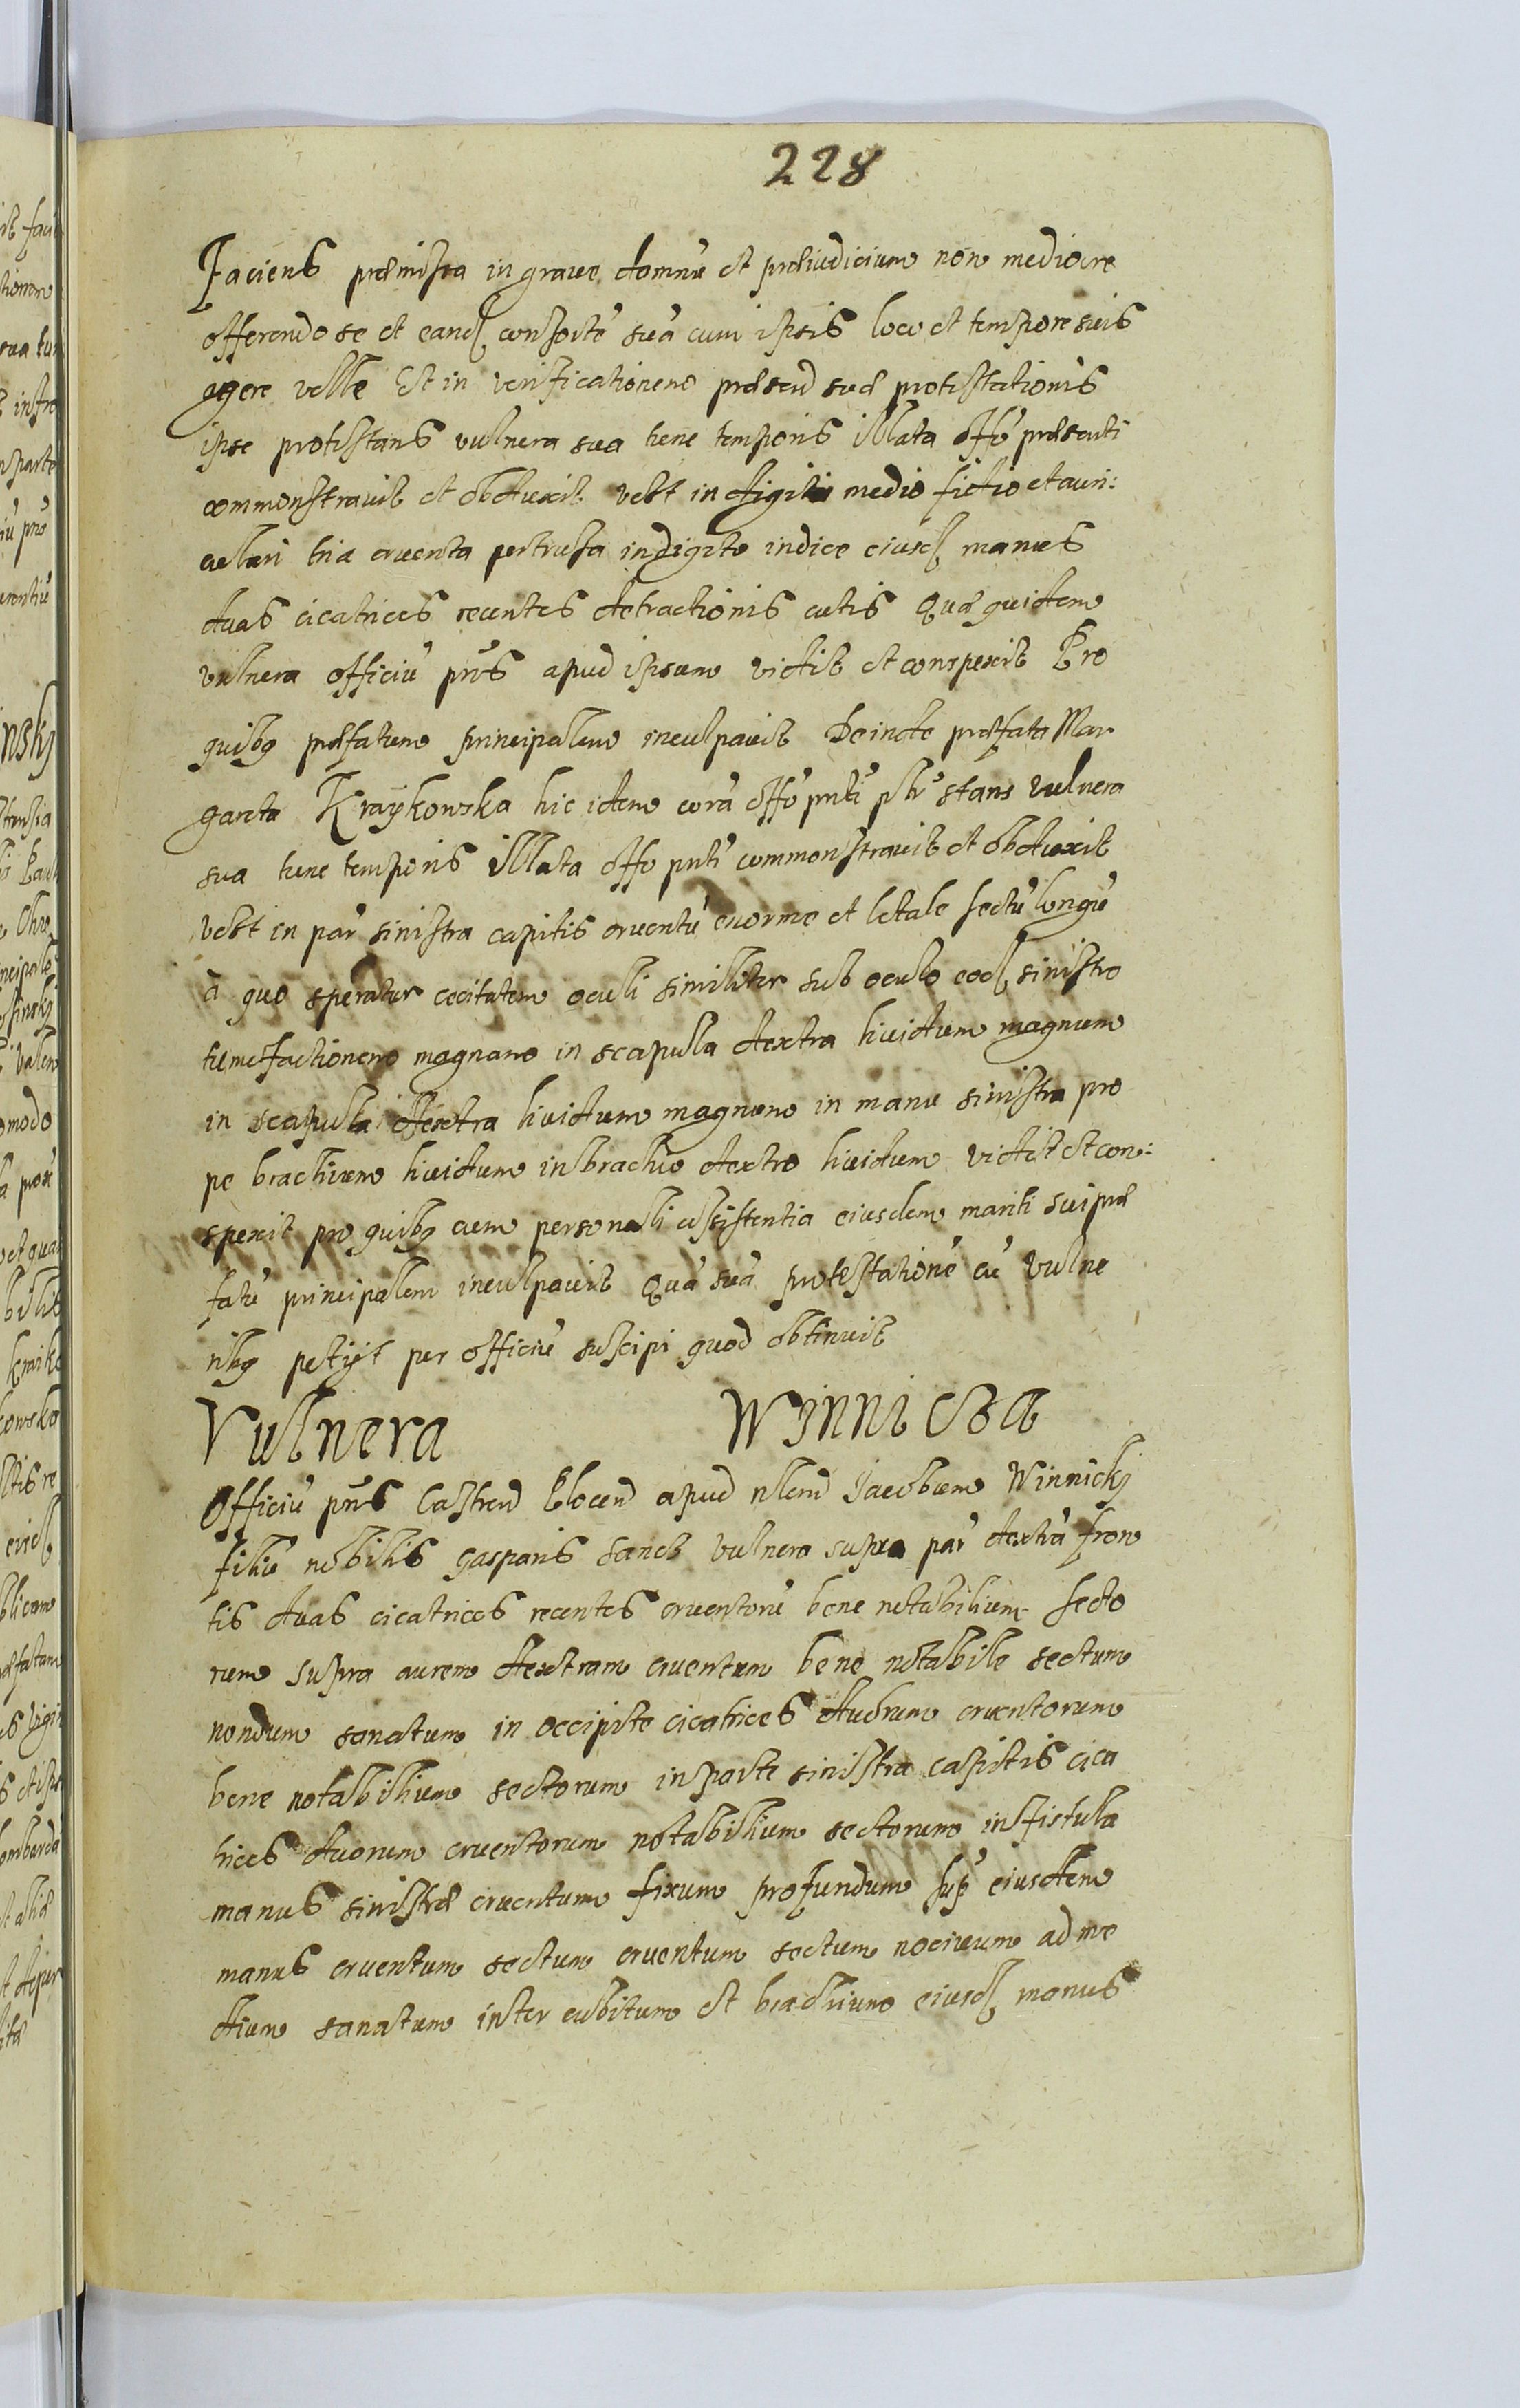 228
Faciens præmissa in graue damnū et præiudicium non mediocre
offerendo se et eand consortē suā cum ipsis loco et tempore suis
agere velle Et in verificationem præsen suæ protestationis
ipse protestans vulnera sua tunc temporis illata offō præsenti
commonstrauit et obduxit vᵱt in digiti medio fictio et auri:
culari tria cruenta pertrusa in digito indice eiusd manus
duas cicatrices recentes detractionis cutis Quæ quidem
vulnera officiū prns apud ipsum vidit et conspexit Pro
quibq præfatum principalem inculpauit Deinde præfata Mar
gareta Kraykowska hic idem corā offō pnti pltr stans vulnera
sua tunc temporis illata offo pnti commonstrauit et obduxit
in par sinistra capitis cruentū enorme et letale sectū longū
a quo speratur cecitatem oculi similiter sub oculo eod sinistro
tumefactionem magnam in scapulla dextra liuidum magnum
in scapulla dextra liuidum magnum in manu sinistra pro
pe brachium liuidum in brachio dextro liuidum vidit et con:
spexit pro quibq cum personali assistentia eiusdem mariti sui præ
fatū principalem inculpauit Quā suā protestationē cū vulne
ribq petyt per officiū suscipi quod obtinuit
Vulnera Winniczka
Officiū prns Castren Plocen apud nlem Jacobum Winnickj
filiū nobilis gasparis vulnera supra par dextra fron
tis duas cicatrices recentes cruentorū bene notabilium secto
rum supra aurem dextram cruentum bene notabile sectum
nondum sanatum in occipite cicatrices duorum cruentorum
bene notabilium sectorum in parte sinistra capitis cica
trices duorum cruentorum notabilium sectorum in fistula
manus sinistræ cruentum fixum profundum sup eiusdem
manus cruentum sectum cruentum sectum nociuum ad me
dium sanatum inter cubitum et brachium eiusd manus